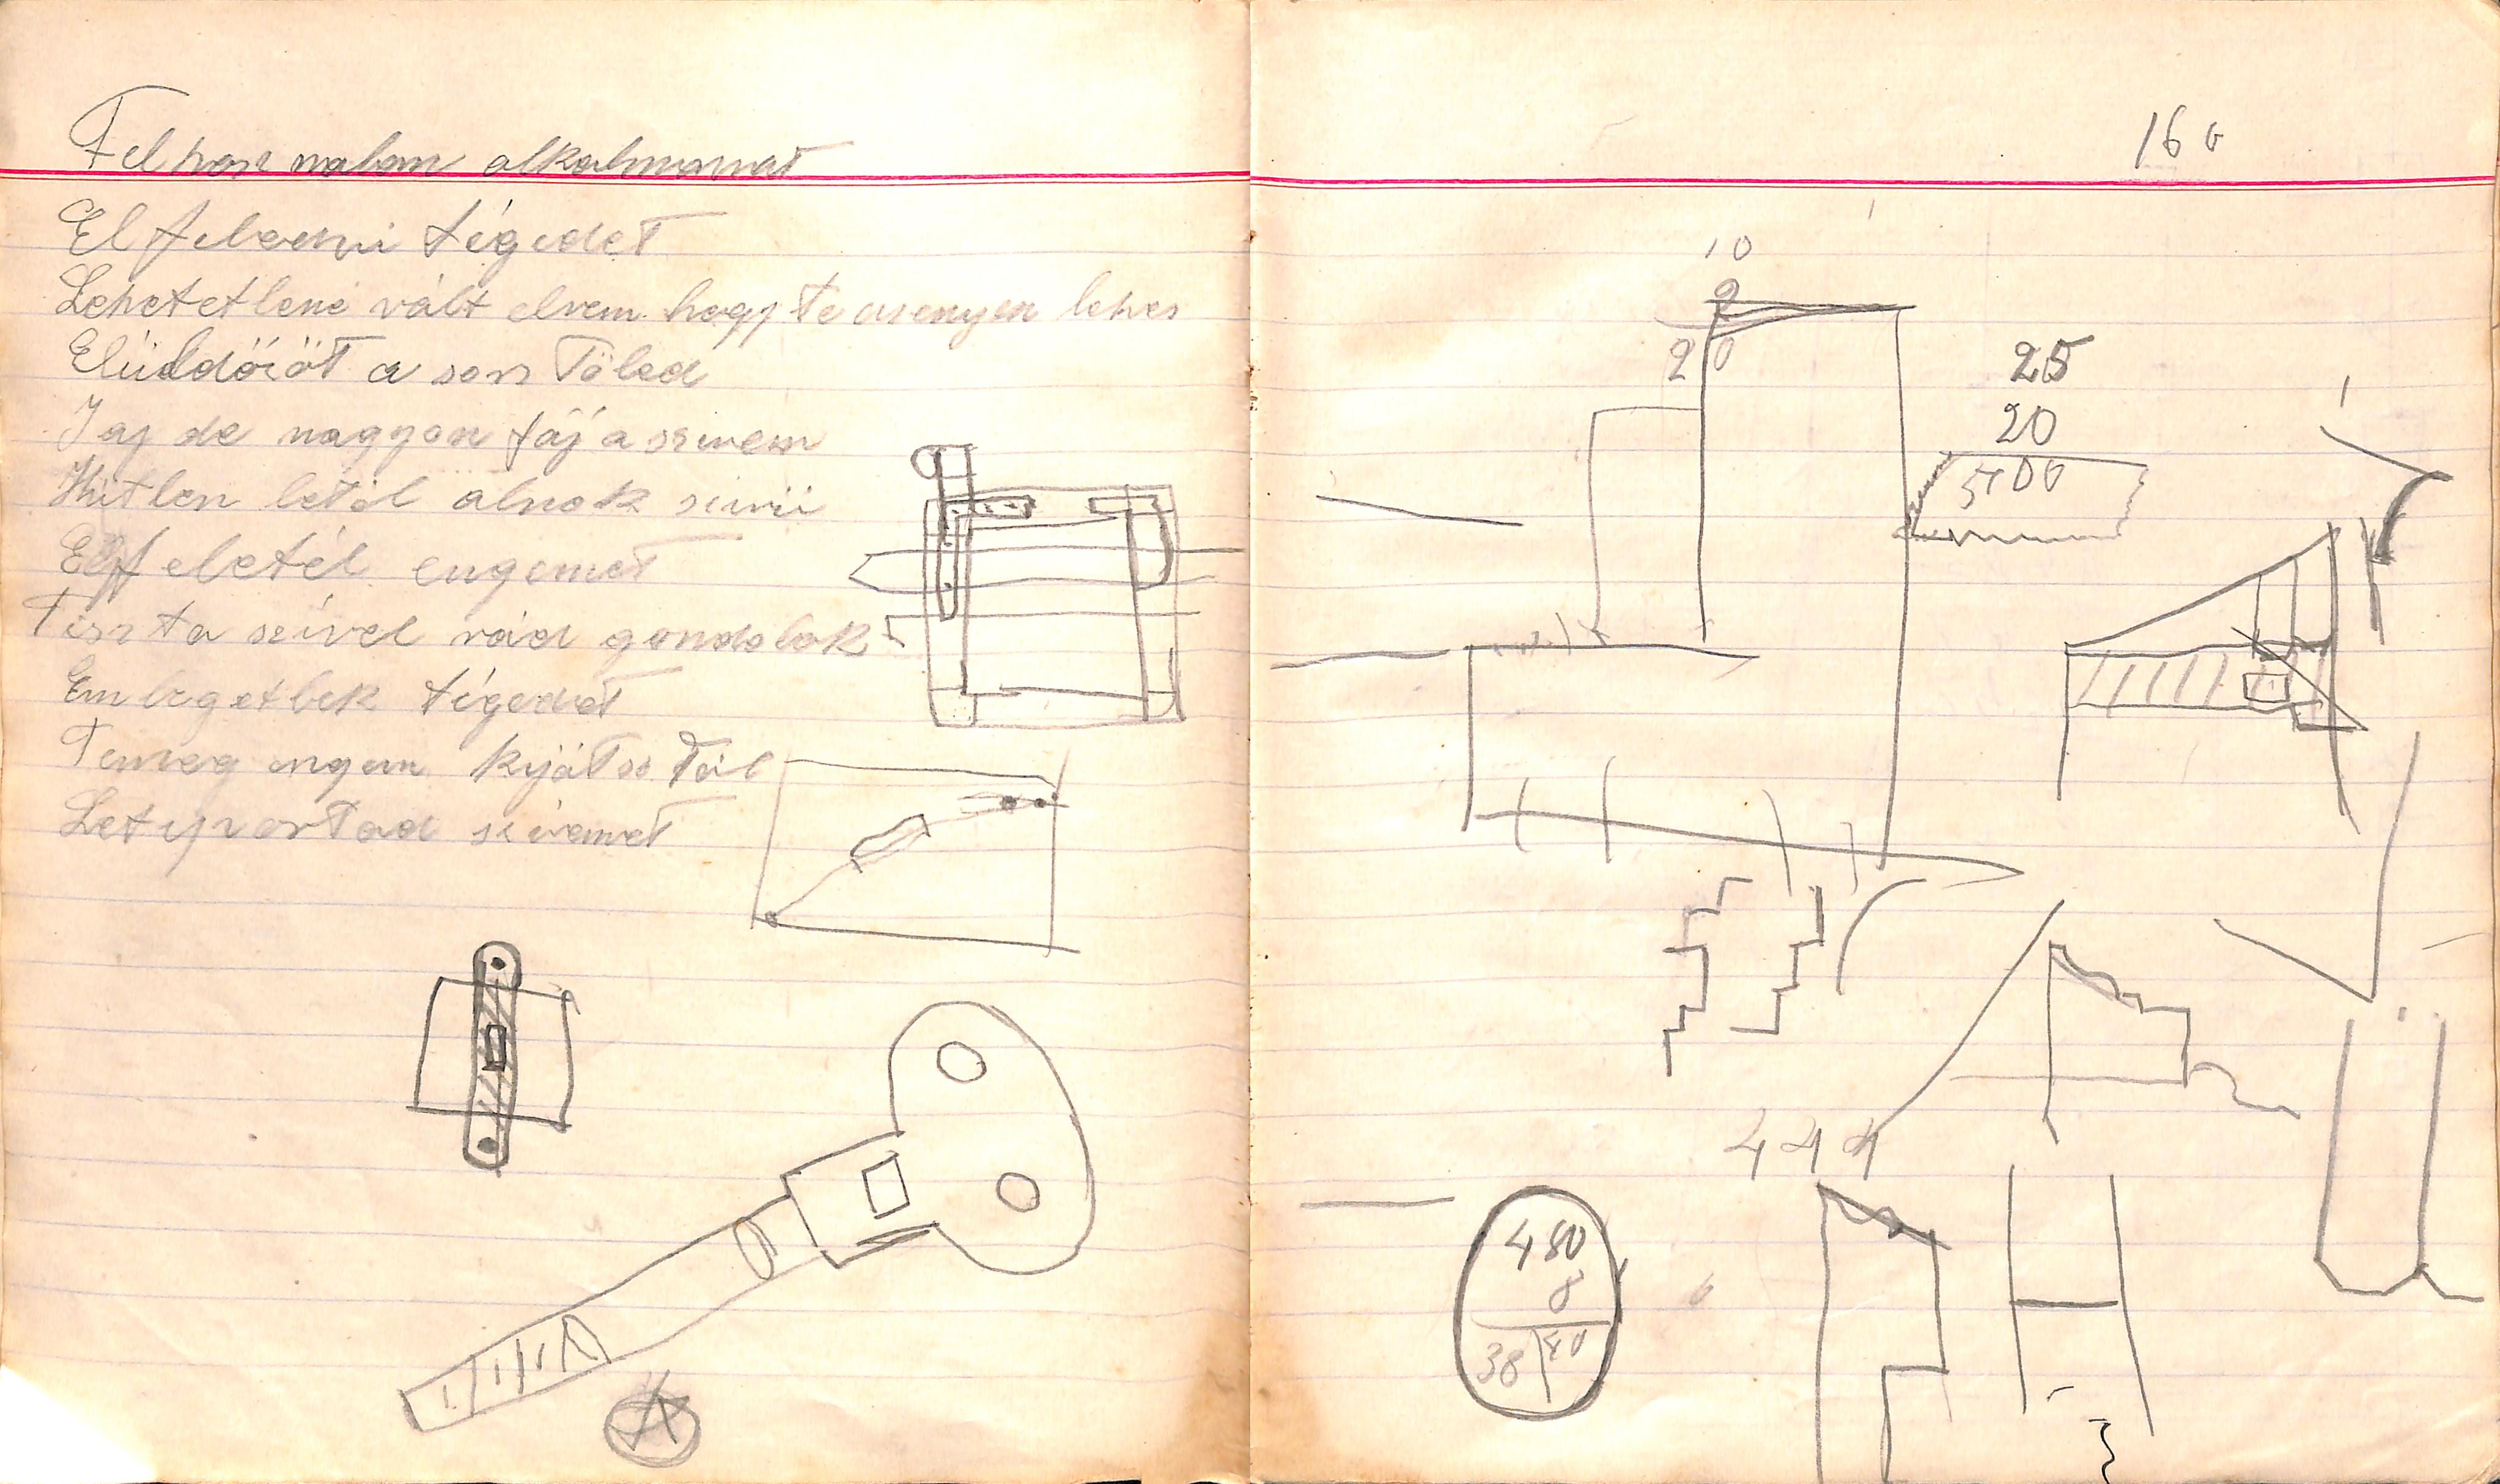 Felhasznalom alkalmamat
Elfeledni tégedet
Lehetetlené vált elvem hogy te asenyem lehes
Elüldözöt a sors Töled
Jaj de nagyon fáj a szivem
Hütlen letél alnok sivü
Elffeletél engemet
Tiszta szível rád gondolok
Emlegetlek tégedet
Temeg engem kijátsz Tál
Letiportad szivemet
A
160
10
2
20
25
20
500
444
480
8
38 40